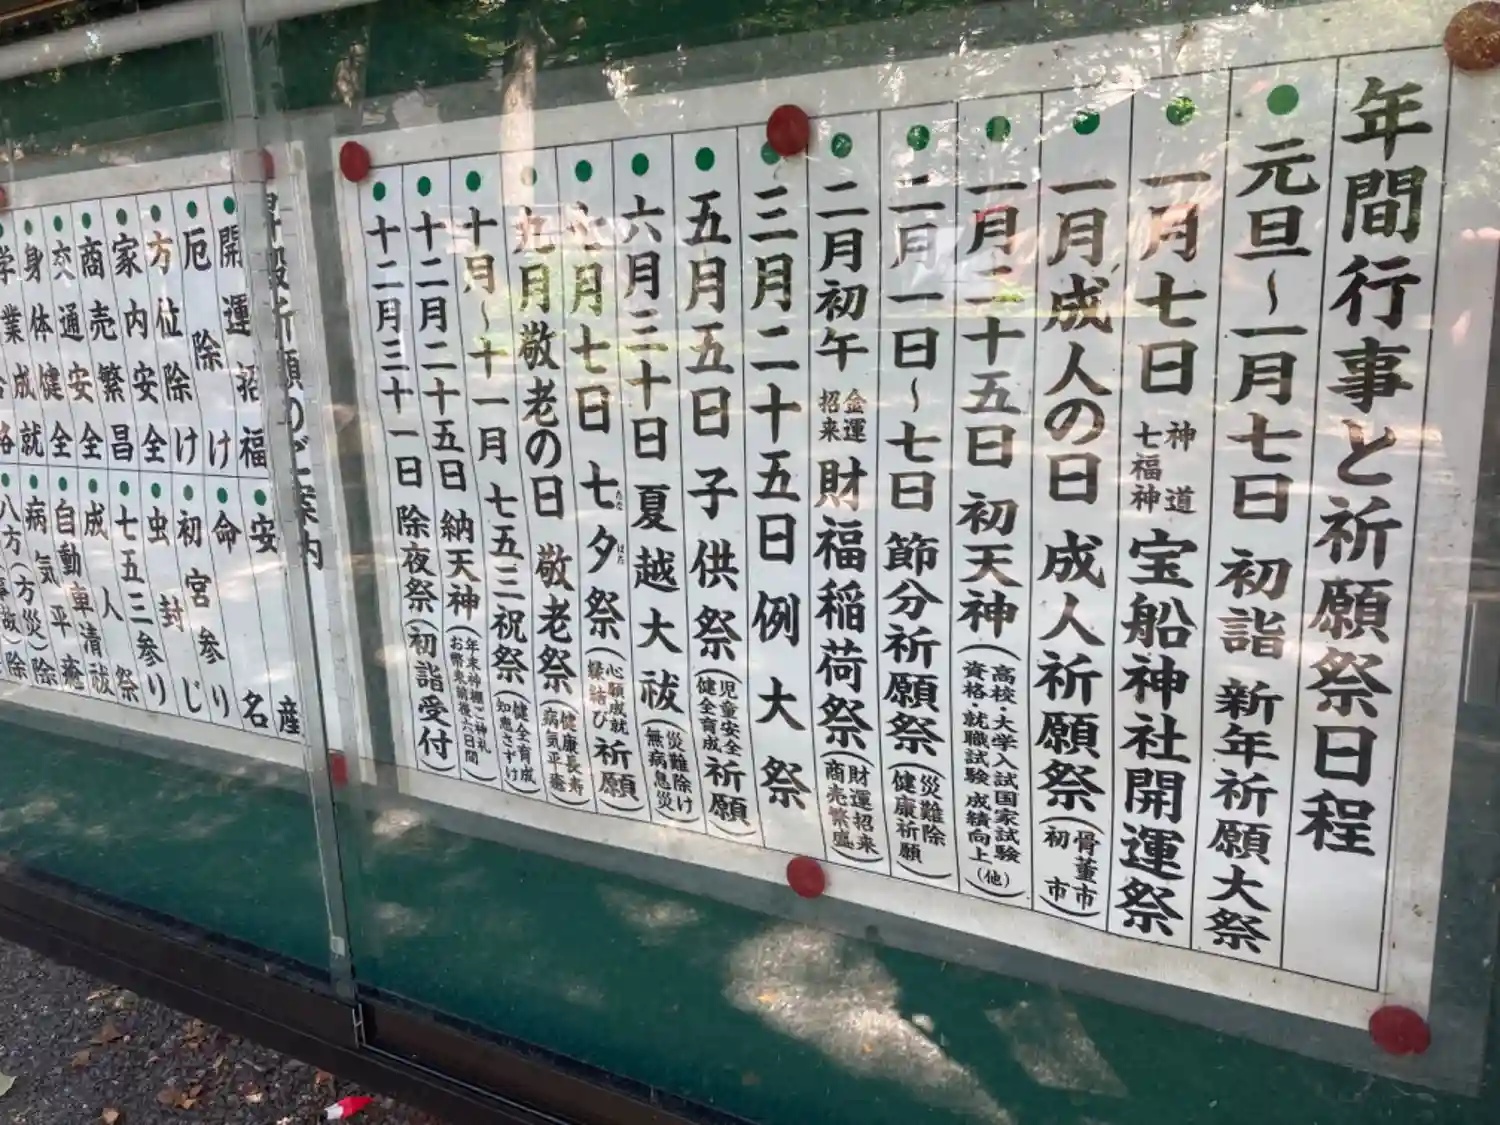 年間行事と祈願祭日程
元旦~一月七日 初詣 新年祈願大祭
一月七日 神道 七福神 宝船神社開運祭
一月成人の日 成人祈願祭(骨董市 初市)
一月二十五日 初天神(高校・大学入試国家試験 資格・就職試験 成績向上(他))
二月一日~七日 節分祈願祭(災難除 健康祈願)
二月初午 金運招来 財福稲荷祭(財運招来 商売繁盛)
三月二十五日 例大祭
五月五日 子供祭(児童安全 健全育成)祈願
六月三十日 夏越大祓(災難除け 無病息災)
七月七日 七夕祭(心願成就 縁結び)祈願
九月敬老の日 敬老祭(健康長寿 病気平癒)
十月~十一月 七五三祝祭(健全育成 知恵さずけ)
十二月二十五日 納天神
十二月三十一日 除夜祭(初詣受付)
昇殿祈願のご案内
開運招福
厄除け
方位除け
家内安全
商売繁昌
交通安全
身体健全
安産
命名
初宮参り
虫封じ
七五三参り
成人祭
自動車清祓
病気平癒